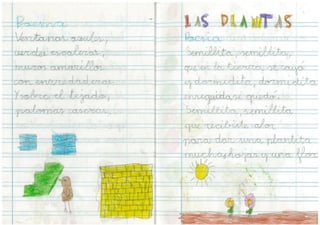 Poesía
Ventanas azules,
verdes escaleras,
muros amarillos
con enredaderas
y sobre el tejado,
palomas caseras.
LAS PLANTAS
Poesía
Semillita, semillita,
que en la tierra se cayó
y dormidita, dormidita
enseguida se quedó.
Semillita, semillita
que recibiste calor,
para dar una plantita
muchas hojas y una flor